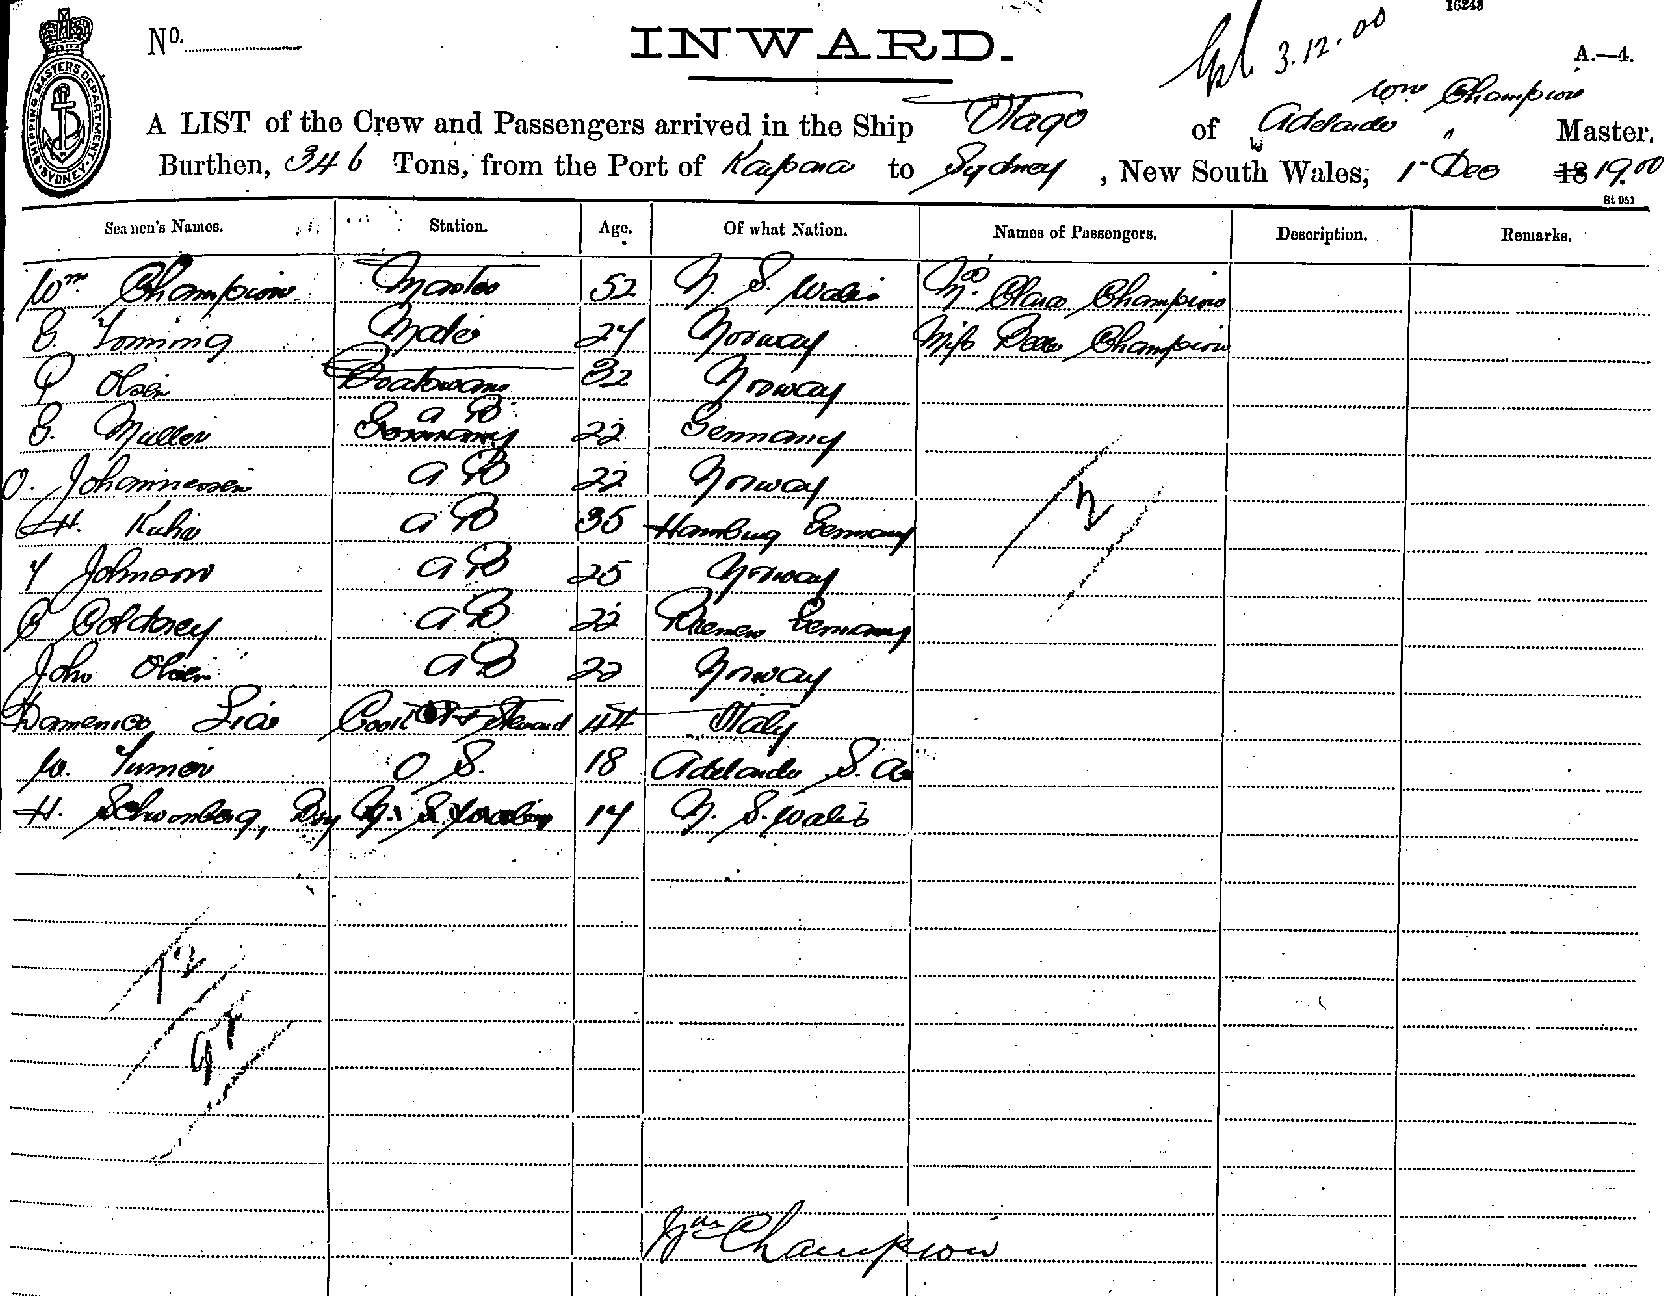 16248
No. INWARD. 3.12.00 A.—4.
SHIPPING MASTERS DEPARTMENT SYDNEY
Wm Champion
A LIST of the Crew and Passengers arrived in the Ship Otago of Adelaide, " Master.
Burthen, 346 Tons, from the Port of Kaipara to Sydney, New South Wales, 1st Dec 18 1900
St 051
Seamen's Names. Station. Age. Of what Nation. Names of Passengers. Description. Remarks.
Wm Champion Master 52 N. S. Wales Mrs Clara Champion
E. Mate 24 Norway Miss Champion
P Olsen Boatswain 32 Norway
A B
G. Muller Germany 22 Germany
O. Johannessen A B 22 Norway
H. Kuhn A B 35 Hamburg Germany
Y Johnson A B 25 Norway
C A B 22 Bremen Germany
John Olsen A B 22 Norway
Domenico Cook & Steward 44 Italy
W. Turner O S. 18 Adelaide S. A
H. Schwonberg, Boy N. S. Wales 14 N. S. Wales
2
12
Wm Champion